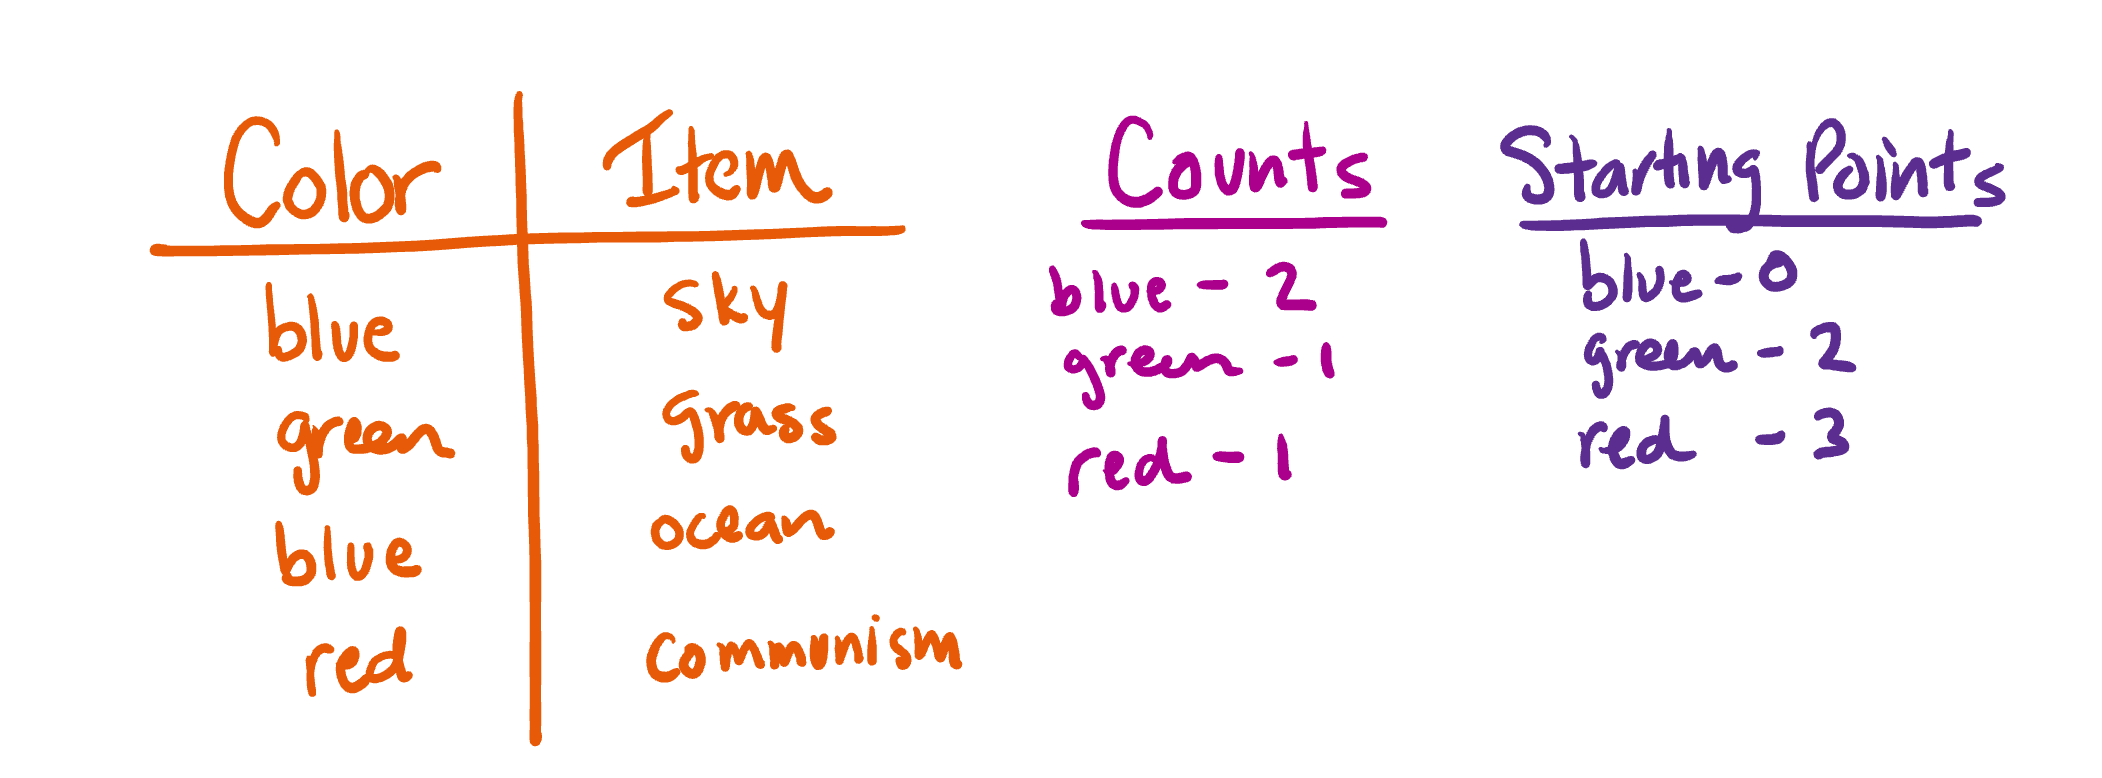 Color Item
blue sky
green grass
blue ocean
red communism
Counts
blue - 2
green - 1
red - 1
Starting Points
blue - 0
green - 2
red - 3